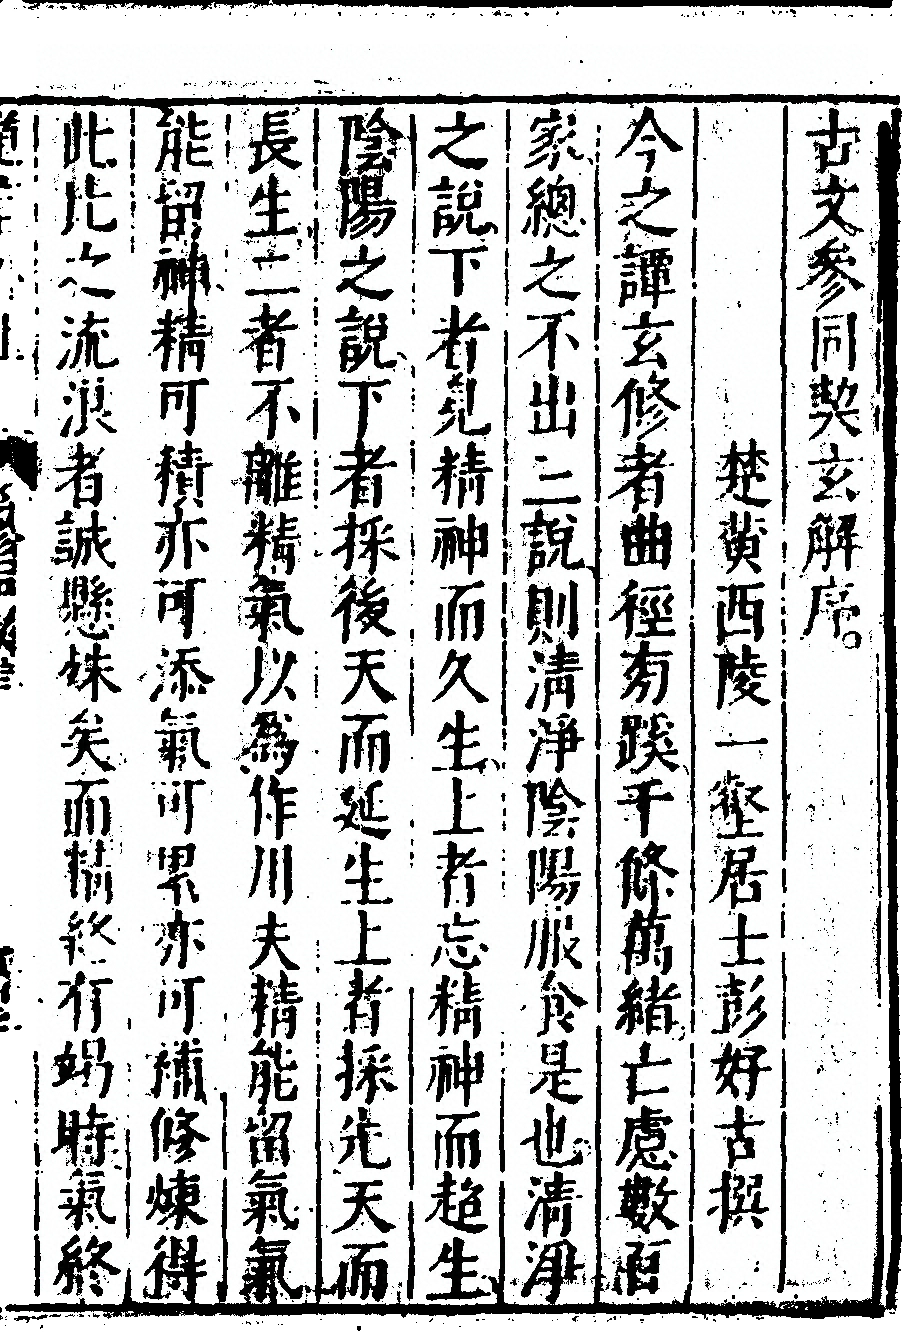 古文參同契玄解序
楚黄西陵一壑居士彭好古撰
今之譚玄修者曲徑旁蹊千條萬緒亡慮數百
家總之不出三說則清淨陰陽服食是也清淨
之說下者見精神而久生上者忘精神而超生
陰陽之說下者採後天而延生上者採先天而
長生二者不離精氣以爲作川夫精能留氣氣
能留神精可積亦可添氣可累亦可補修煉得
此比之流浪者誠懸殊矣而精終有竭時氣終